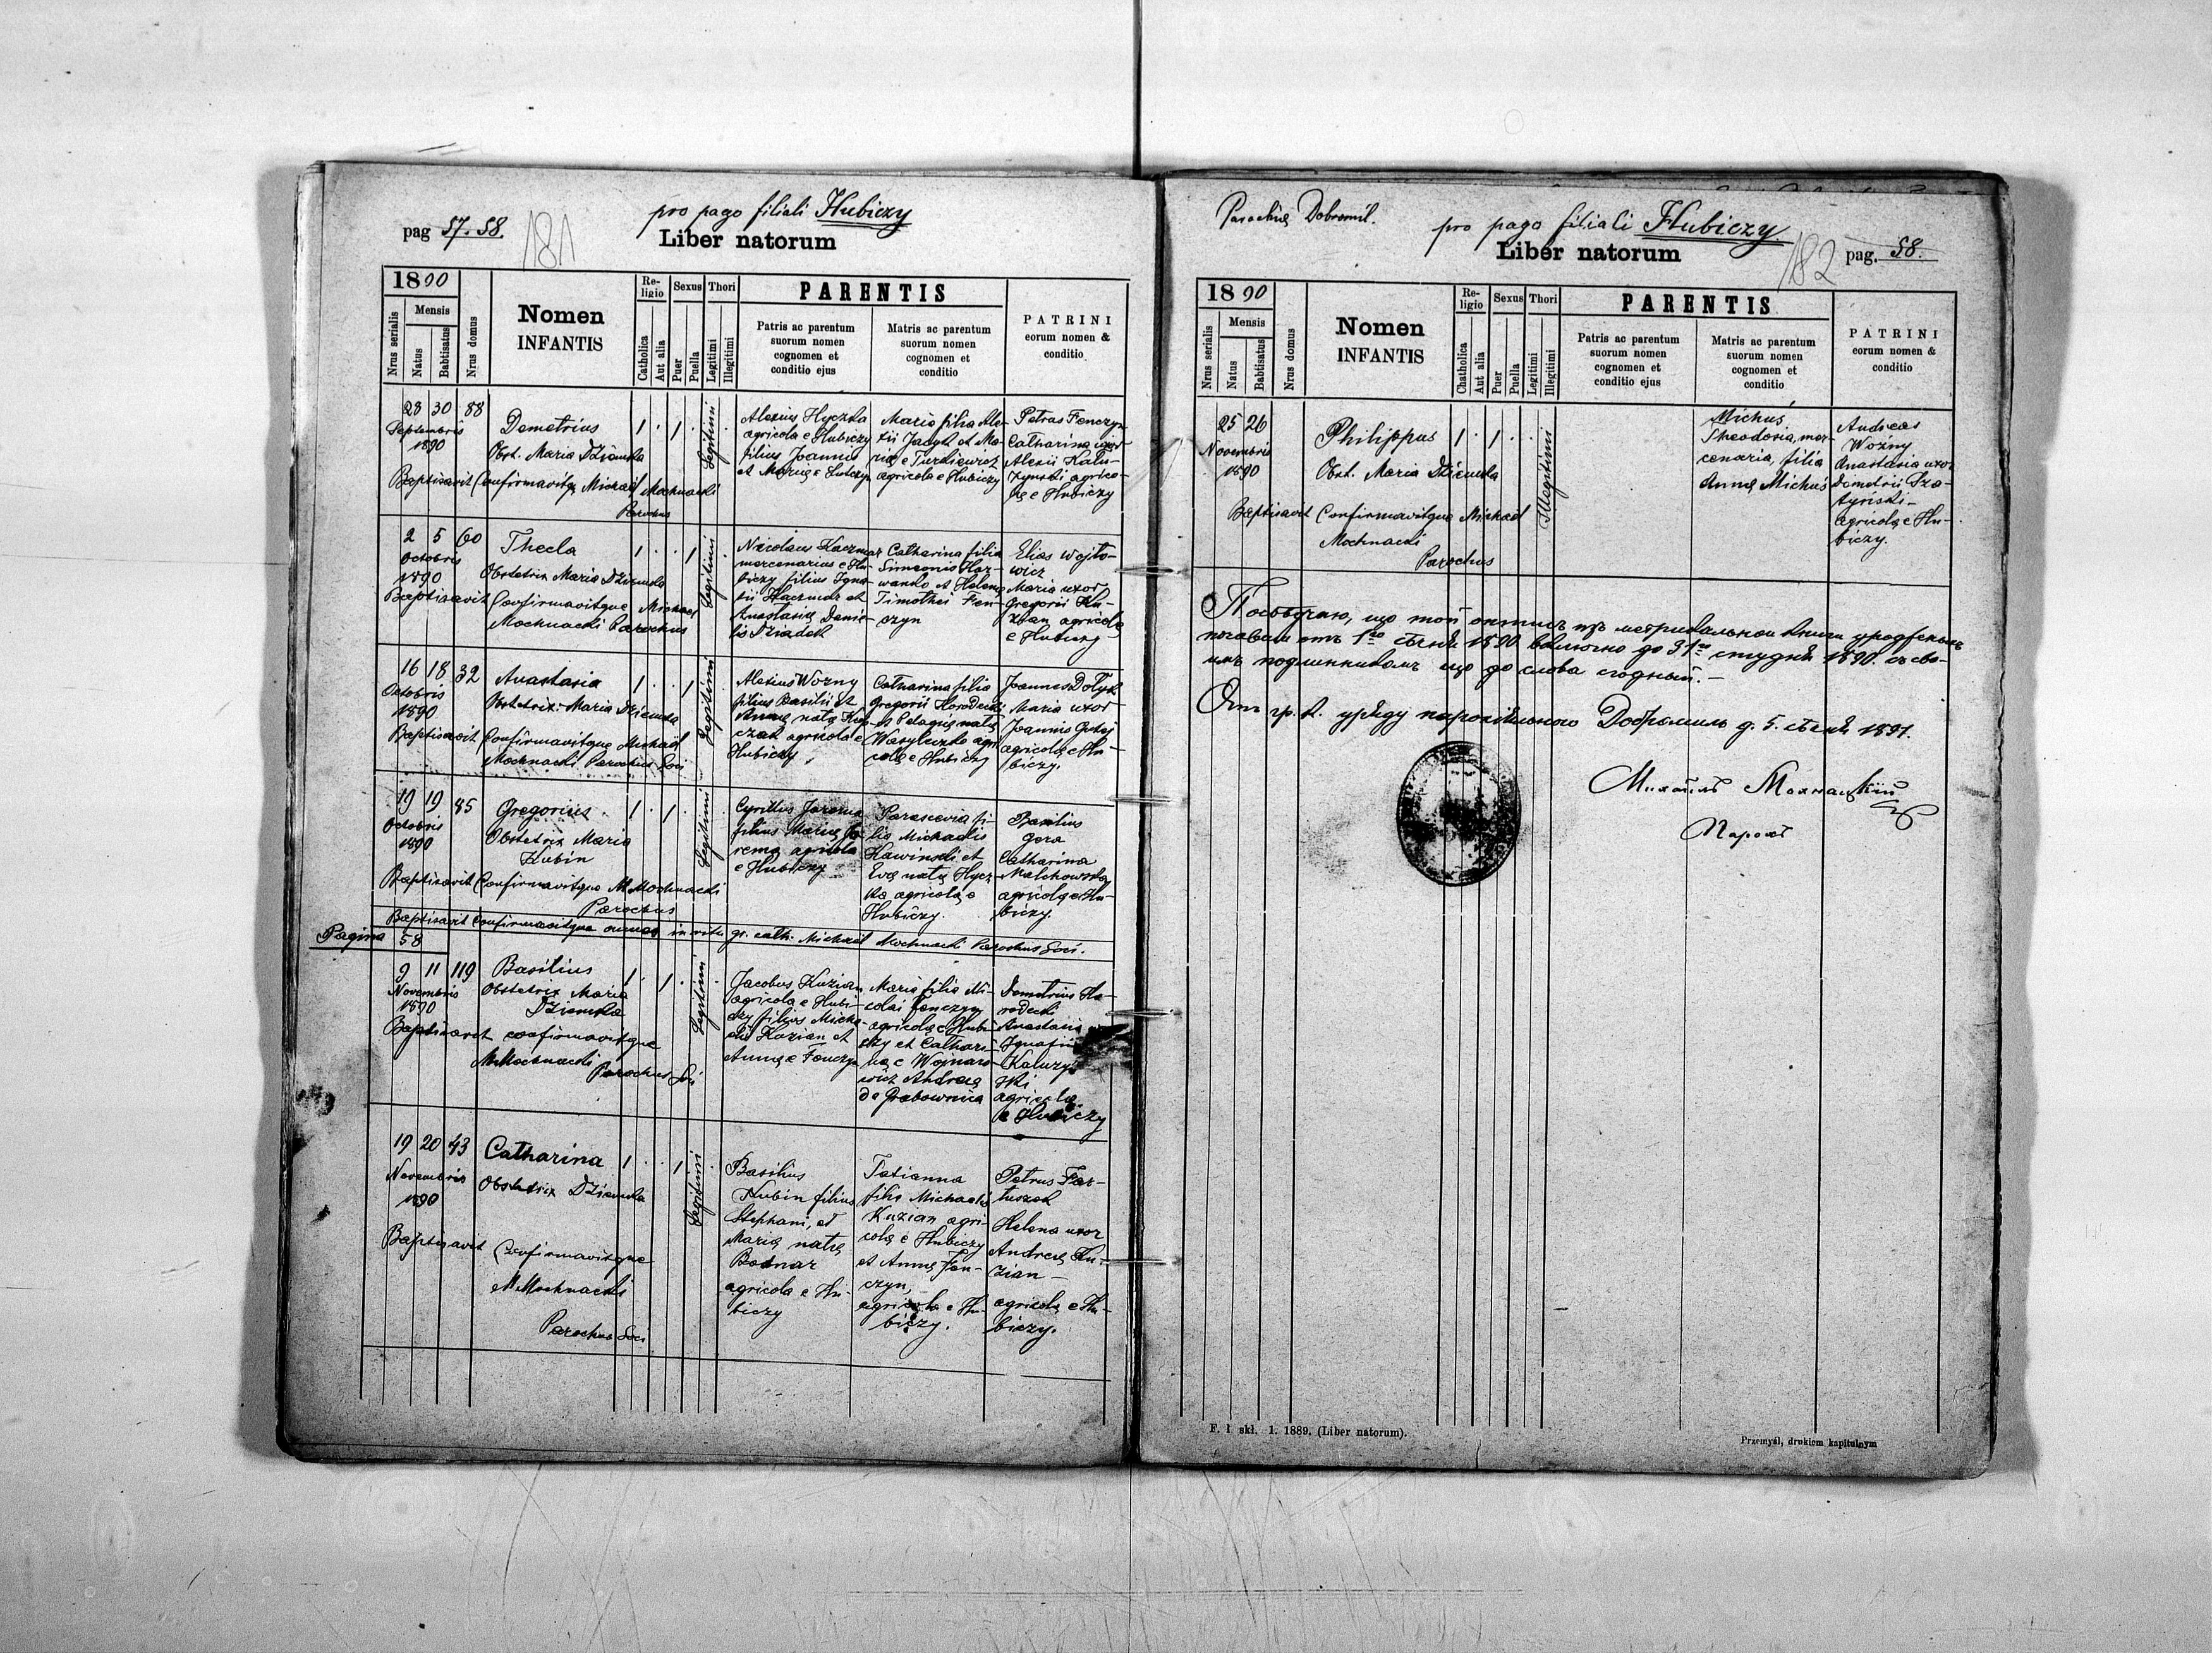 pag 57. 58.
181
pro pago filiali Hubiczy
Liber natorum
1890
Nrus serialis
Mensis
Natus
Babtisatus
Nrus domus
Nomen
INFANTIS
Religio
Catholica
Aut alia
Sexus
Puer
Puella
Thori
Legitimi
Illegitimi
PARENTIS
Patris ac parentum
suorum nomen
cognomen et
conditio ejus
Matris ac parentum
suorum nomen
cognomen et
conditio
PATRINI
eorum nomen &
conditio
28 30 88
Septembris
1890
Demetrius
Obst. Maria Dziamba
Baptisavit Confirmavitque Michael Mochnacki
Parochus
1 . 1 . Legitimi .
Alexius Hyczka
agricola e Hubiczy
filius Joannis
et Mariæ
Maria filia Ale-
xii Jacyk et Ma-
riæ e Turkiewicz
agricola e Hubiczy
Petrus Fenczyn
Catharina uxor
Alexii Kalu-
zynski agrico-
læ e Hubiczy
2 5 60
Octobris
1890
Thecla
Obstetrix Maria
Baptisavit Confirmavitque Michael
Mochnacki Parochus
1 . . 1 Legitimi .
Nicolaus Kaczmar
mercenarius e Hu-
biczy filius Igna-
tii Kaczmar et
Anastasiæ Danie-
lis Dziadek
Catharina filia
Simeonis Hor-
wanko et Helenæ
Timothei Fen-
czyn
Elias Wojto-
wicz
Maria uxor
Gregorii Ku-
zian agricolæ
e Hubiczy
16 18 32
Octobris
1890
Anastasia
Obstetrix: Maria
Baptisavit Confirmavitque Michaël
Mochnacki Parochus Loci
1 . . 1 Legitimi
Alexius Wozny
filius Basilii et
Annæ natæ Ku-
czak agricola e
Hubiczy
Catharina filia
Gregorii Horodecki
et Pelagiæ natæ
Wasyleczko agri
colæ e Hubiczy
Joannes Dotyk
Maria uxor
Joannis
agricolæ e Hu-
biczy.
19 19 85
Octobris
1890
Gregorius
Obstetrix Maria
Hubin
Baptisavit Confirmavitque M Mochnacki
Parochus
1 . 1 . Legitimi .
Cyrillus Jarema
filius Mariæ Ja-
rema agricola
e Hubiczy
Parascevia fi-
lia Michaelis
Hawinski et
Evæ natæ Hycz-
ka agricolæ e
Hubiczy.
Basilius
Gera
Catharina
Malchowska
agricolæ e Hu-
biczy.
Baptisavit Confirmavitque omnes in ritu gr. cath. Michael Mochnacki Parochus Loci.
Pagina 58
9 11 119
Novembris
1890
Basilius
Obstetrix Maria
Dziamba
Baptisavit confirmavitque
M Mochnacki
Parochus Loci
1 . 1 . Legitimi .
Jacobus Kuzian
agricola e Hubi-
czy filius Micha-
elis Kuzian et
Annæ e Fenczyn
Maria filia Ni-
colai Fenczyn
agricolæ e Hubi-
czy et Cathari-
næ Wojnaro-
wicz Andreæ
de Grabownica
Demetrius Ho-
rodecki
Anastasia
Ignatii
Kaluzyn-
ski
agricolæ
e Hubiczy
19 20 43
Novembris
1890
Catharina
Obstetrix Dziamba
Baptisavit Confirmavitque
M Mochnacki
Parochus Loci
1 . . 1 Legitimi .
Basilius
Hubin filius
Stephani, et
Mariæ natæ
Bodnar
agricola e Hu-
biczy
Tatianna
filia Michaelis
Kuzian agri-
colæ e Hubiczy
et Annæ Fen-
czyn,
agricola e Hu-
biczy.
Petrus Far-
tuszok
Helena uxor
Andreæ Ku-
zian –
agricolæ e Hu-
biczy.
Parochiæ Dobromil.
pro pago filiali Hubiczy
Liber natorum
182
pag. 58.
1890
Nrus serialis
Mensis
Natus
Babtisatus
Nrus domus
Nomen
INFANTIS
Religio
Chatholica
Aut alia
Sexus
Puer
Puella
Thori
Legitimi
Illegitimi
PARENTIS
Patris ac parentum
suorum nomen
cognomen et
conditio ejus
Matris ac parentum
suorum nomen
cognomen et
conditio
PATRINI
eorum nomen &
conditio
25 26
Novembris
1890
Philippus
Obst. Maria Dziamba
Baptisavit Confirmavitque Michael
Mochnacki
Parochus
1 . 1 . . Illegitimi
Michus,
Theodosia, mer-
cenaria, filia
Annæ Michus
Andreas
Wozny
Anastasia uxor
Demetrii Sza-
tynski –
agricolæ e Hu-
biczy.
що той опись изъ метрикальнои книги
1890 включно до 31го студня 1890
що до слова сгодный. –
Отъ гр. к. уряду парохіяльного Добромиль д. 5. сѣчня 1891.
Михаилъ Мохнацкій
Парохъ
F. I skł. 1. 1889. (Liber natorum).
Przemyśl, drukiem kapitulnym